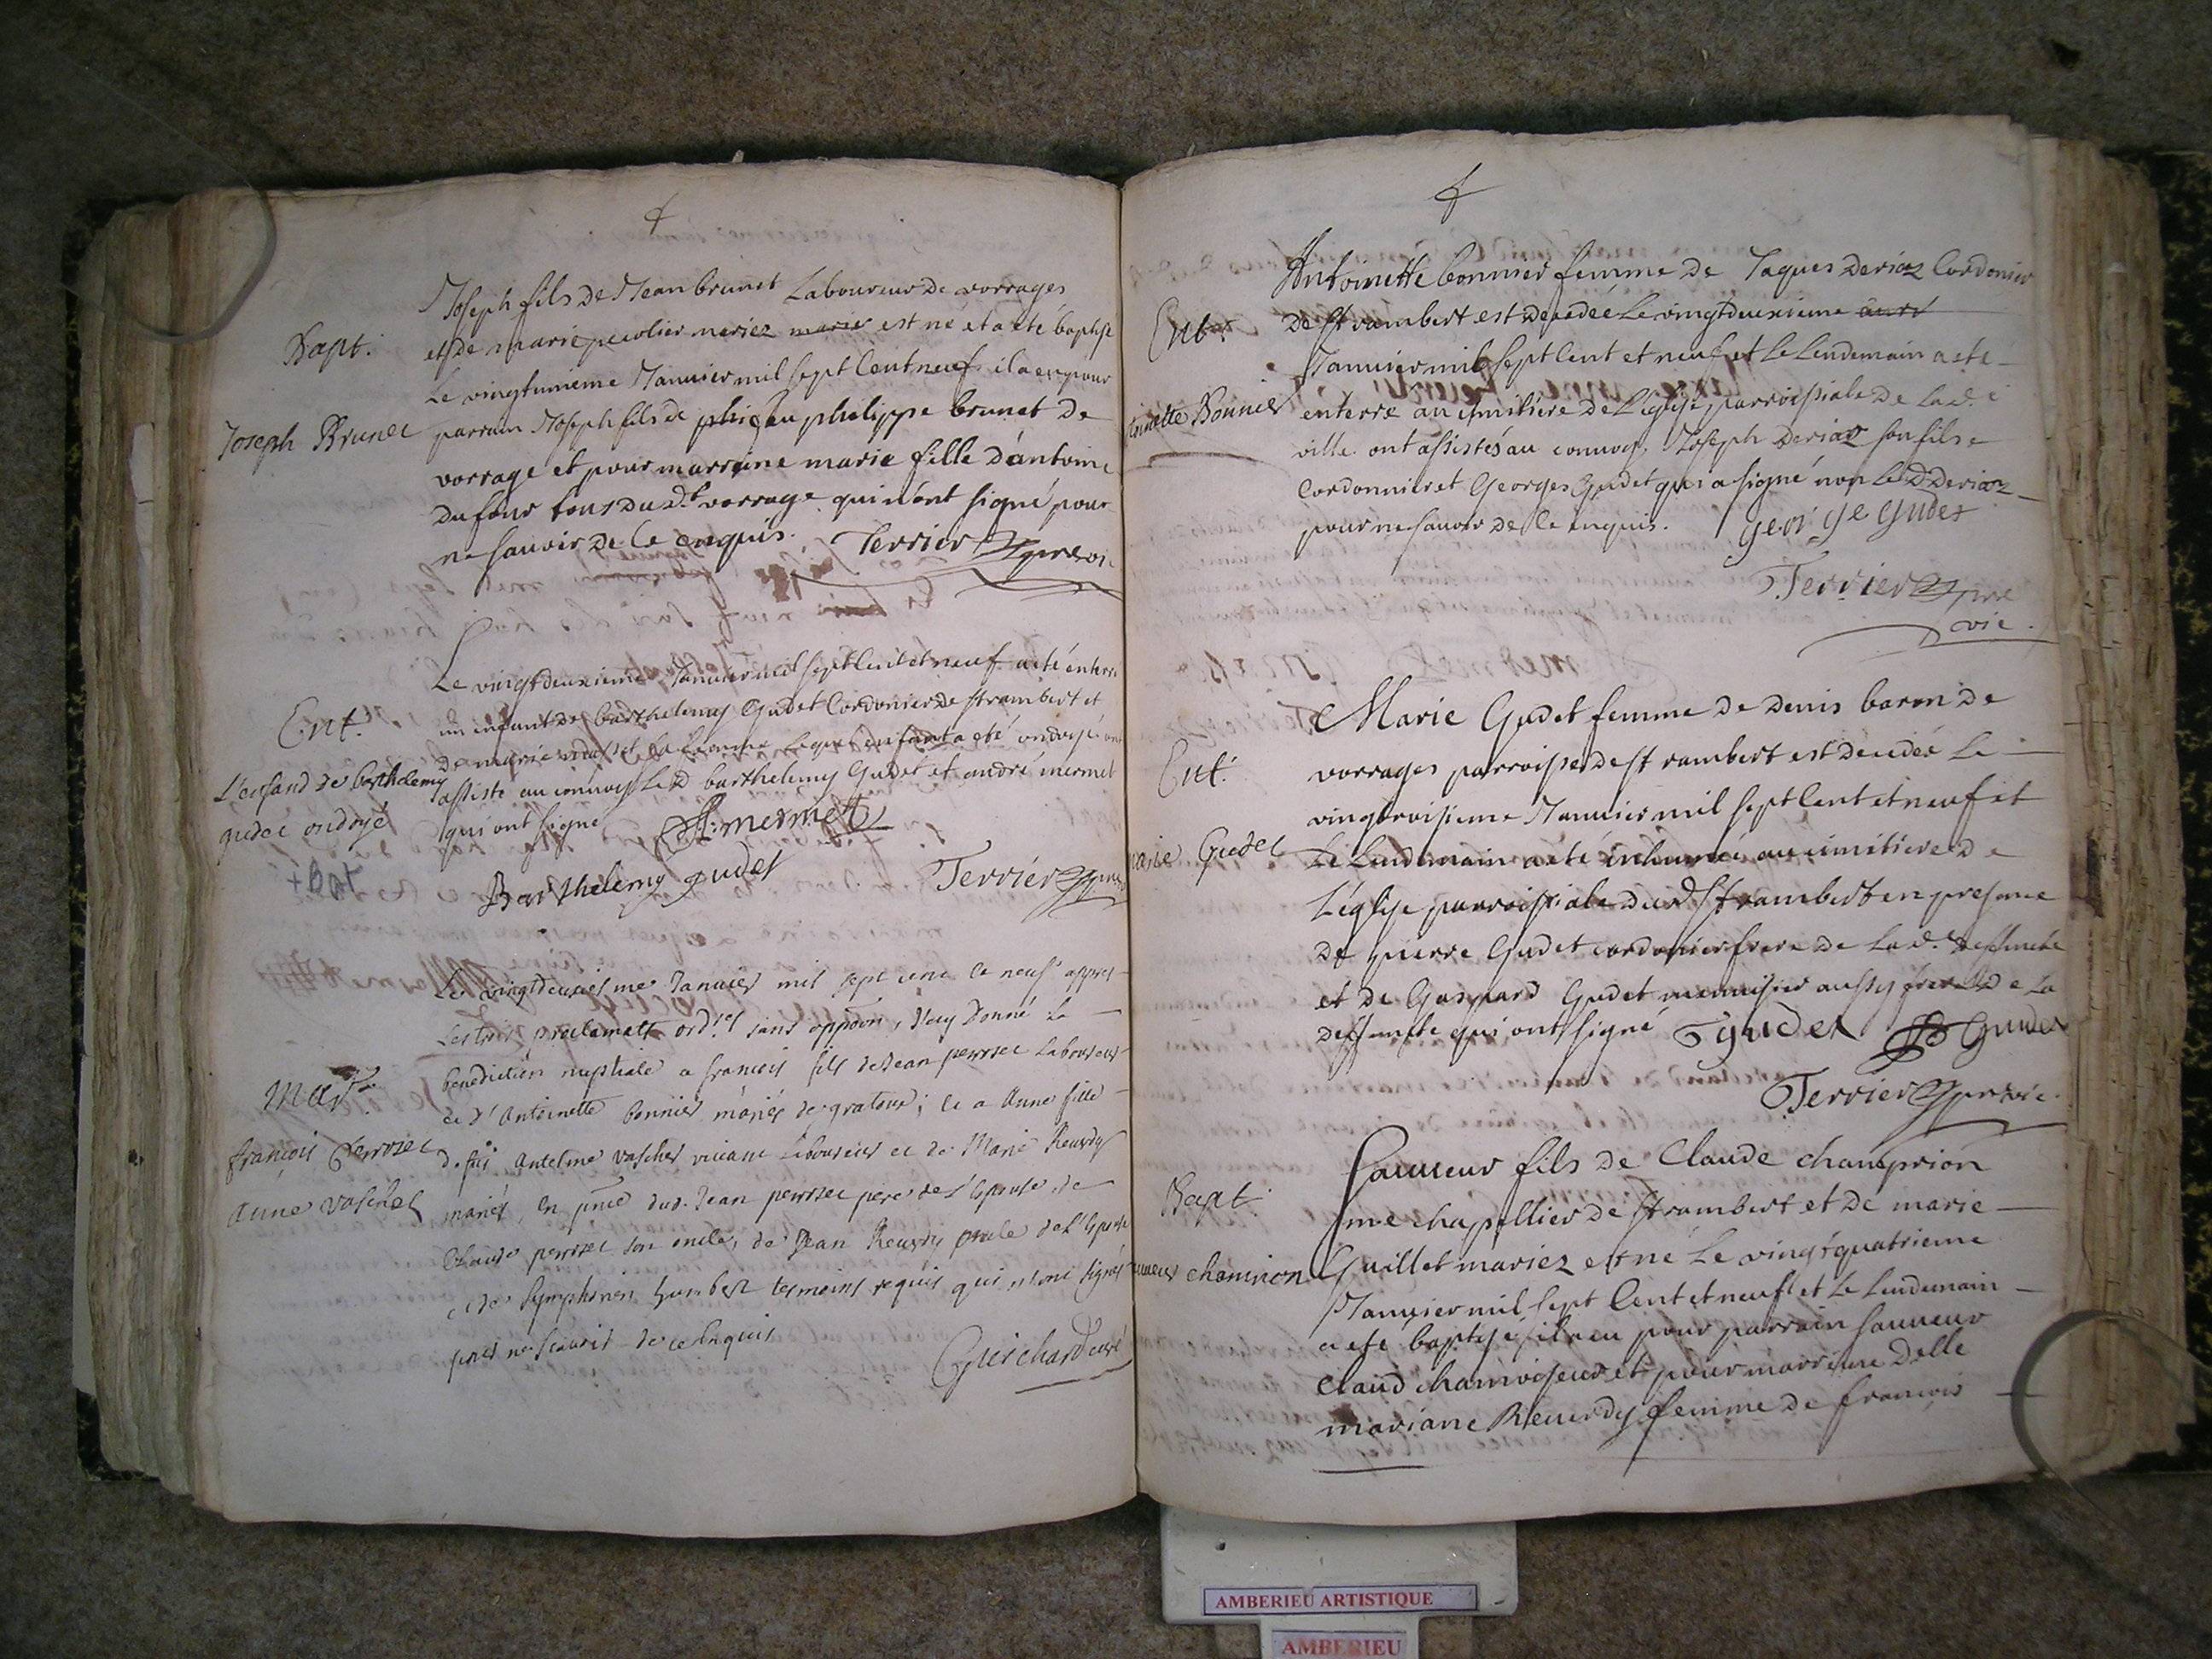 Bapt.
Joseph Brunet
Joseph fils de Jean brunet Laboureur de vorrages
et de marie pecolier mariez marier est né et a eté baptisé
Le vingtunieme Januier mil sept Cent neuf il a eu pour
parrain Joseph fils de phi feu philippe brunet de
vorrage et pour marraine marie fille d'antoine
dufour tous du dt. vorrage qui n'ont signé pour
ne sauoir de ce enquis. Terrier pre vic
Ent.
L'enfand de barthelemy
gudet ondoyé
Le vingt deuxieme Januier mil sept Cent et neuf a eté enterré
un enfant de barthelemy Gudet Cordonier de st rambert et
de marie sa femme lequel enfant a eté ondoyé ont
assiste au conuoy Le d barthelemy Gudet et andré mermet
qui ont signé A: mermet
Barthelemy gudet Terrier pre
Mar.
françois perrozet
anne vascher
Le vingtdeuxiesme Januier mil sept cent et neuf appres
Les trois proclamats ordres sans oppoon, J'ay Donné La
benediction nuptiale a francois fils de Jean perrozet Laboureur
et d'Antoinette bonnier mariés de gratoux; et a Anne fille
de feu Antelme vascher viuant Laboureur et de Marie Reuerdy
mariés, en pnce dud. Jean perrozet pere de L'Epoux, de
Claude perrozet son oncle, de Jean Reuerdy oncle de L'Epouse
et de Symphorien humbert tesmoins requis qui n'ont signés
pour ne scauoir de ce Enquis
Guichard curé
Ent.
toinette Bonnier
Antoinette bonnier femme de Jaques deriaz Cordonier
de st rambert est decedée Le vingtdeuxieme
Januier mil sept Cent et neuf et Le Lendemain a eté
enterre au cimitiere de L'eglise parroissiale de La de
ville ont assistés au conuoy Joseph deriaz son fils
Cordonnier et Georges Gudet qui a signé non Le d deriaz
pour ne sauoir de ce enquis. george gudet
Terrier pre
vic.
Ent.
marie Gudet
Marie Gudet femme de denis baron de
vorrages parroisse de st rambert est decedée Le
vingtroisieme Januier mil sept Cent et neuf et
Le Lendemain a eté inhumée au cimitiere de
L'eglise parroissiale dud St rambert en presence
de pierre Gudet cordonier frere de La de deffuncte
et de Gaspard Gudet menuisier aussy frere de La
deffuncte qui ont signé gudet Gudet
Terrier pre vic.
Bapt.
sauueur chamrion
Sauueur fils de Claude champrion
me chapellier de st rambert et de marie
Guillet mariez est né Le vingtquatrieme
Januier mil sept Cent et neuf et Le Lendemain
a eté baptisé il a eu pour parrain sauueur
Claud chamoiseur et pour marraine Delle
mariane Reuerdy femme de francois
AMBERIEU ARTISTIQUE
AMBERIEU